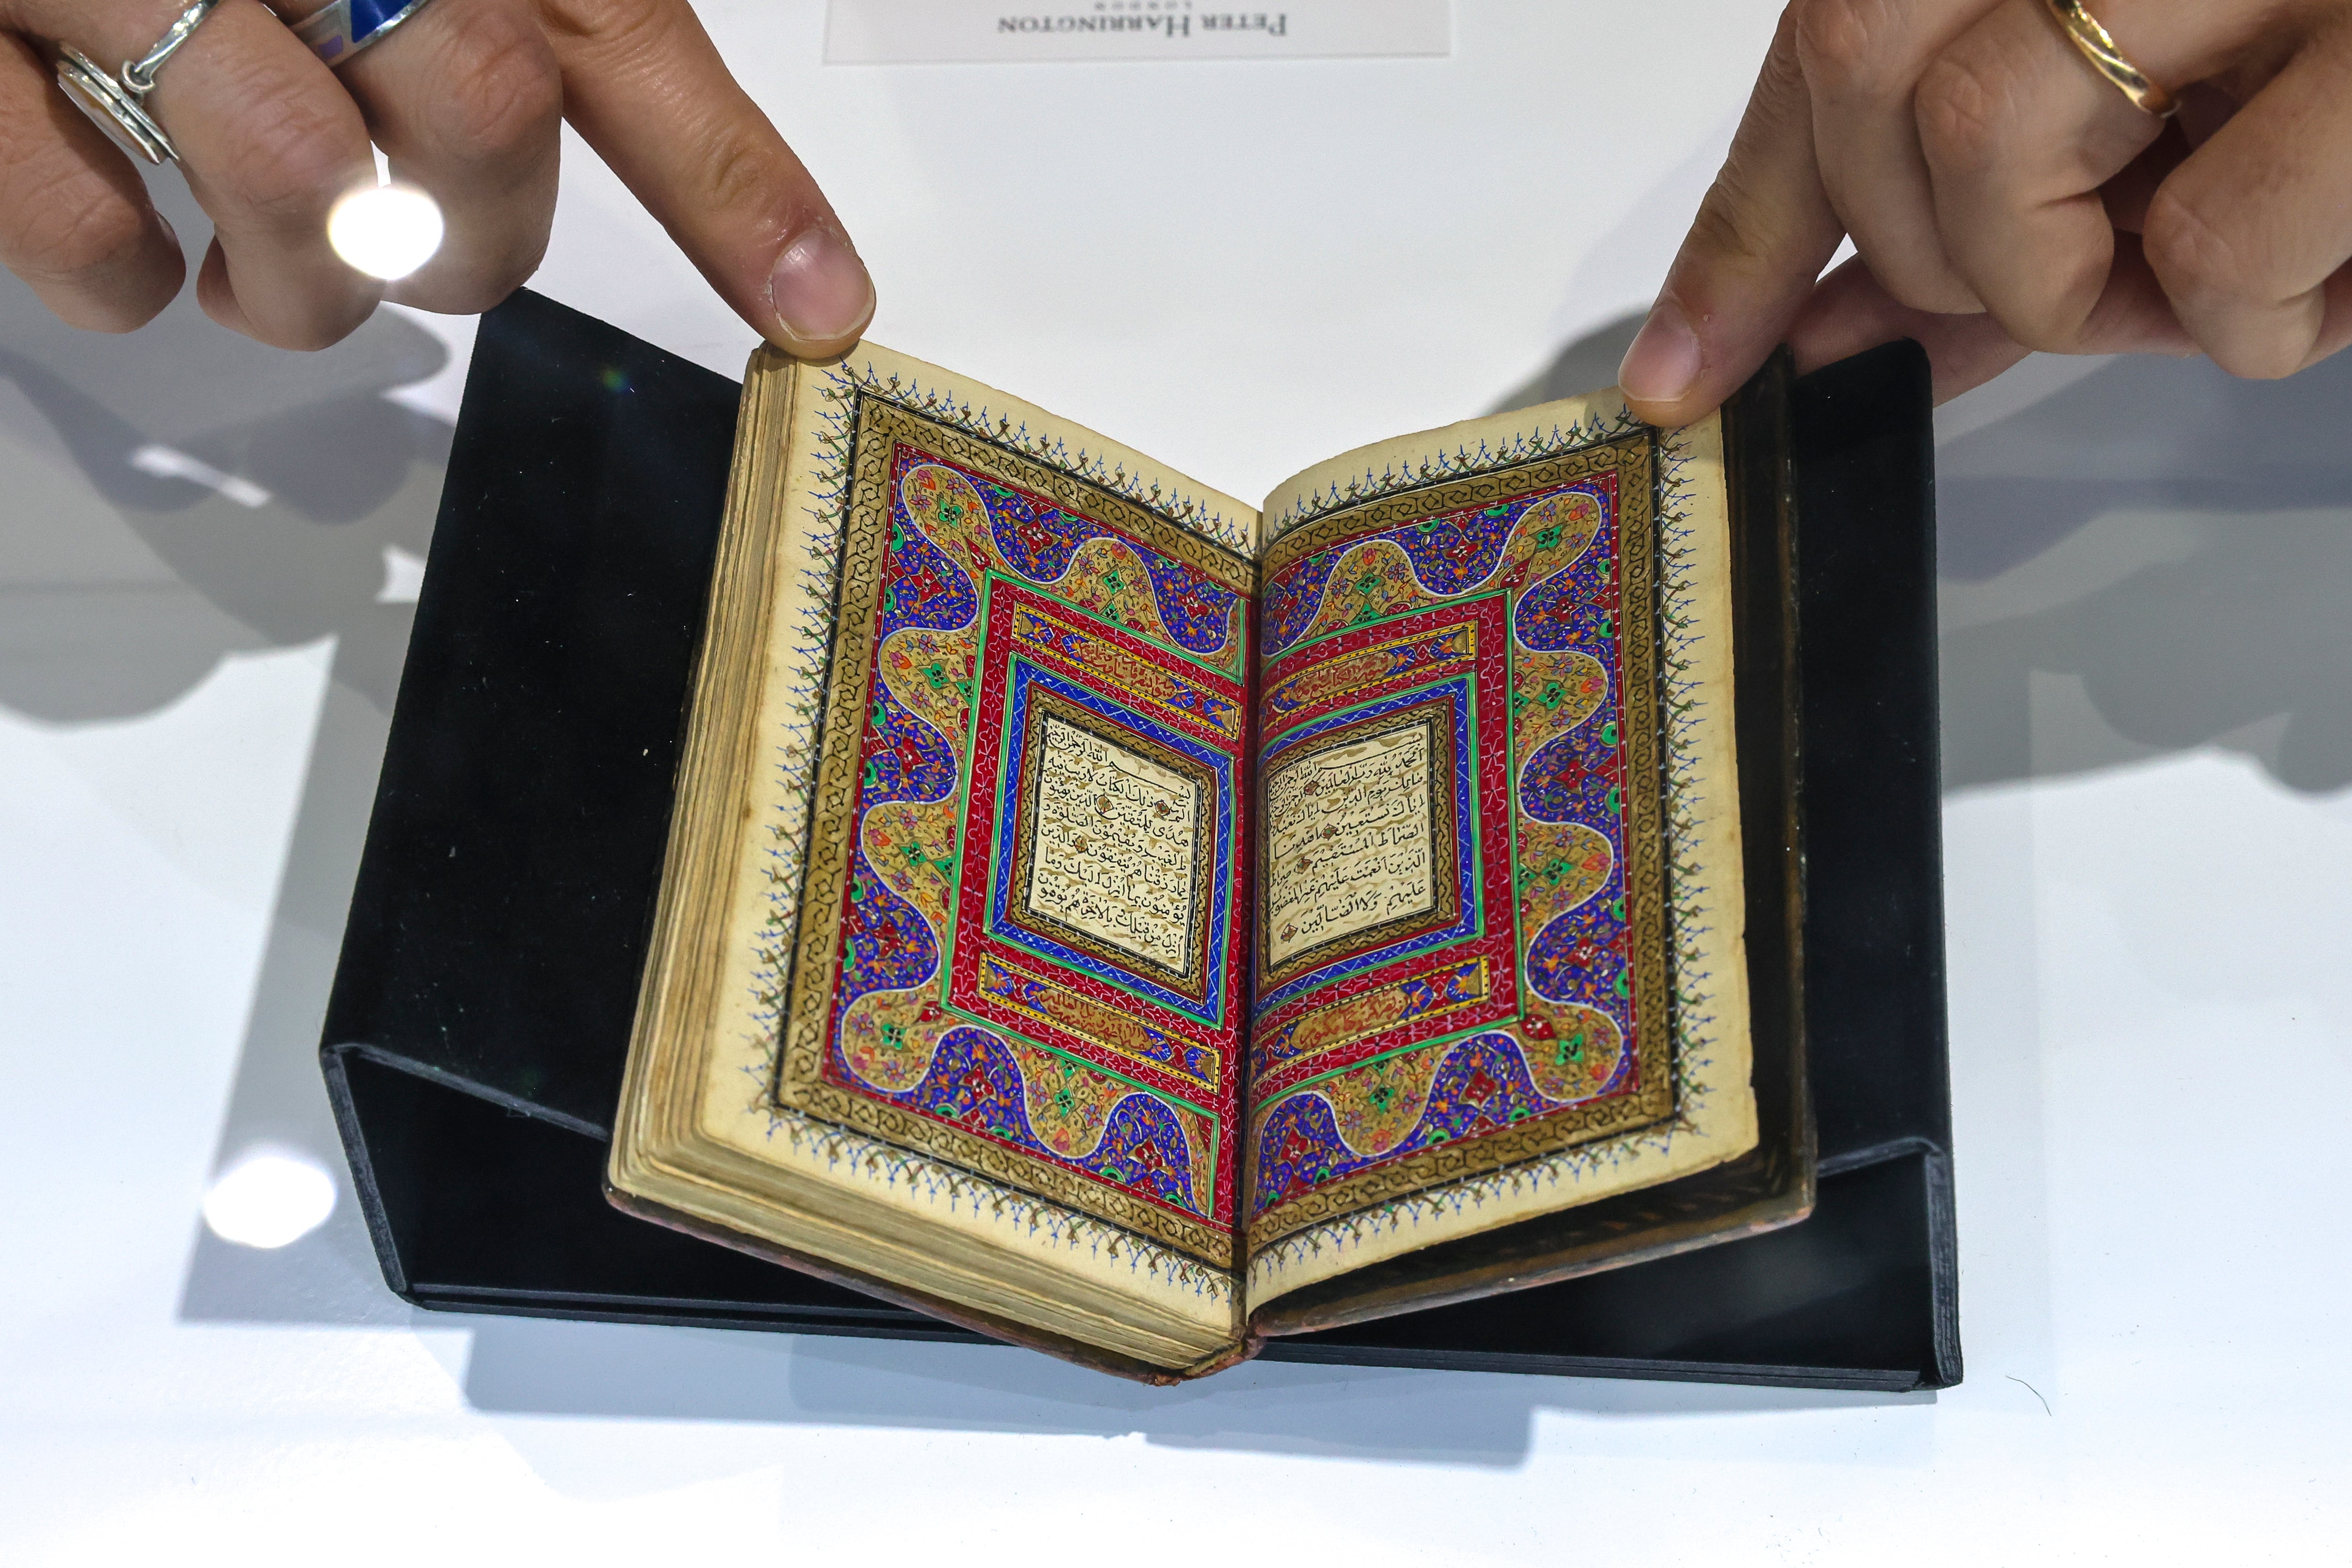 PETER HARRINGTON
LONDON
بسم الله الرحمن الرحيم
الحمد لله رب العالمين الرحمن الرحيم
مالك يوم الدين اياك نعبد و
اياك نستعين اهدنا
الصراط المستقيم صراط
الذين انعمت عليهم غير المغضوب
عليهم ولا الضالين
بسم الله الرحمن الرحيم
الم ذلك الكتاب لا ريب فيه
هدى للمتقين الذين يؤمنون
بالغيب ويقيمون الصلوة و
مما رزقناهم ينفقون والذين
يؤمنون بما انزل اليك وما
انزل من قبلك وبالاخرة هم يوقنون